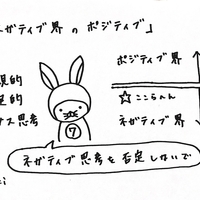 ネガティブ界のポジティブ」
観的
定的
ナス思考
ポジティブ界
☆ここらへん
ネガティブ界
7
ネガティブ思考を否定しないで